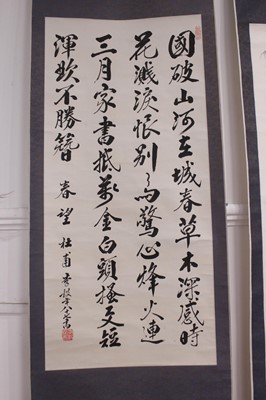 國破山河在城春草木深感時
花濺淚恨別鳥驚心烽火連
三月家書抵萬金白頭搔更短
渾欲不勝簪 春望 杜甫